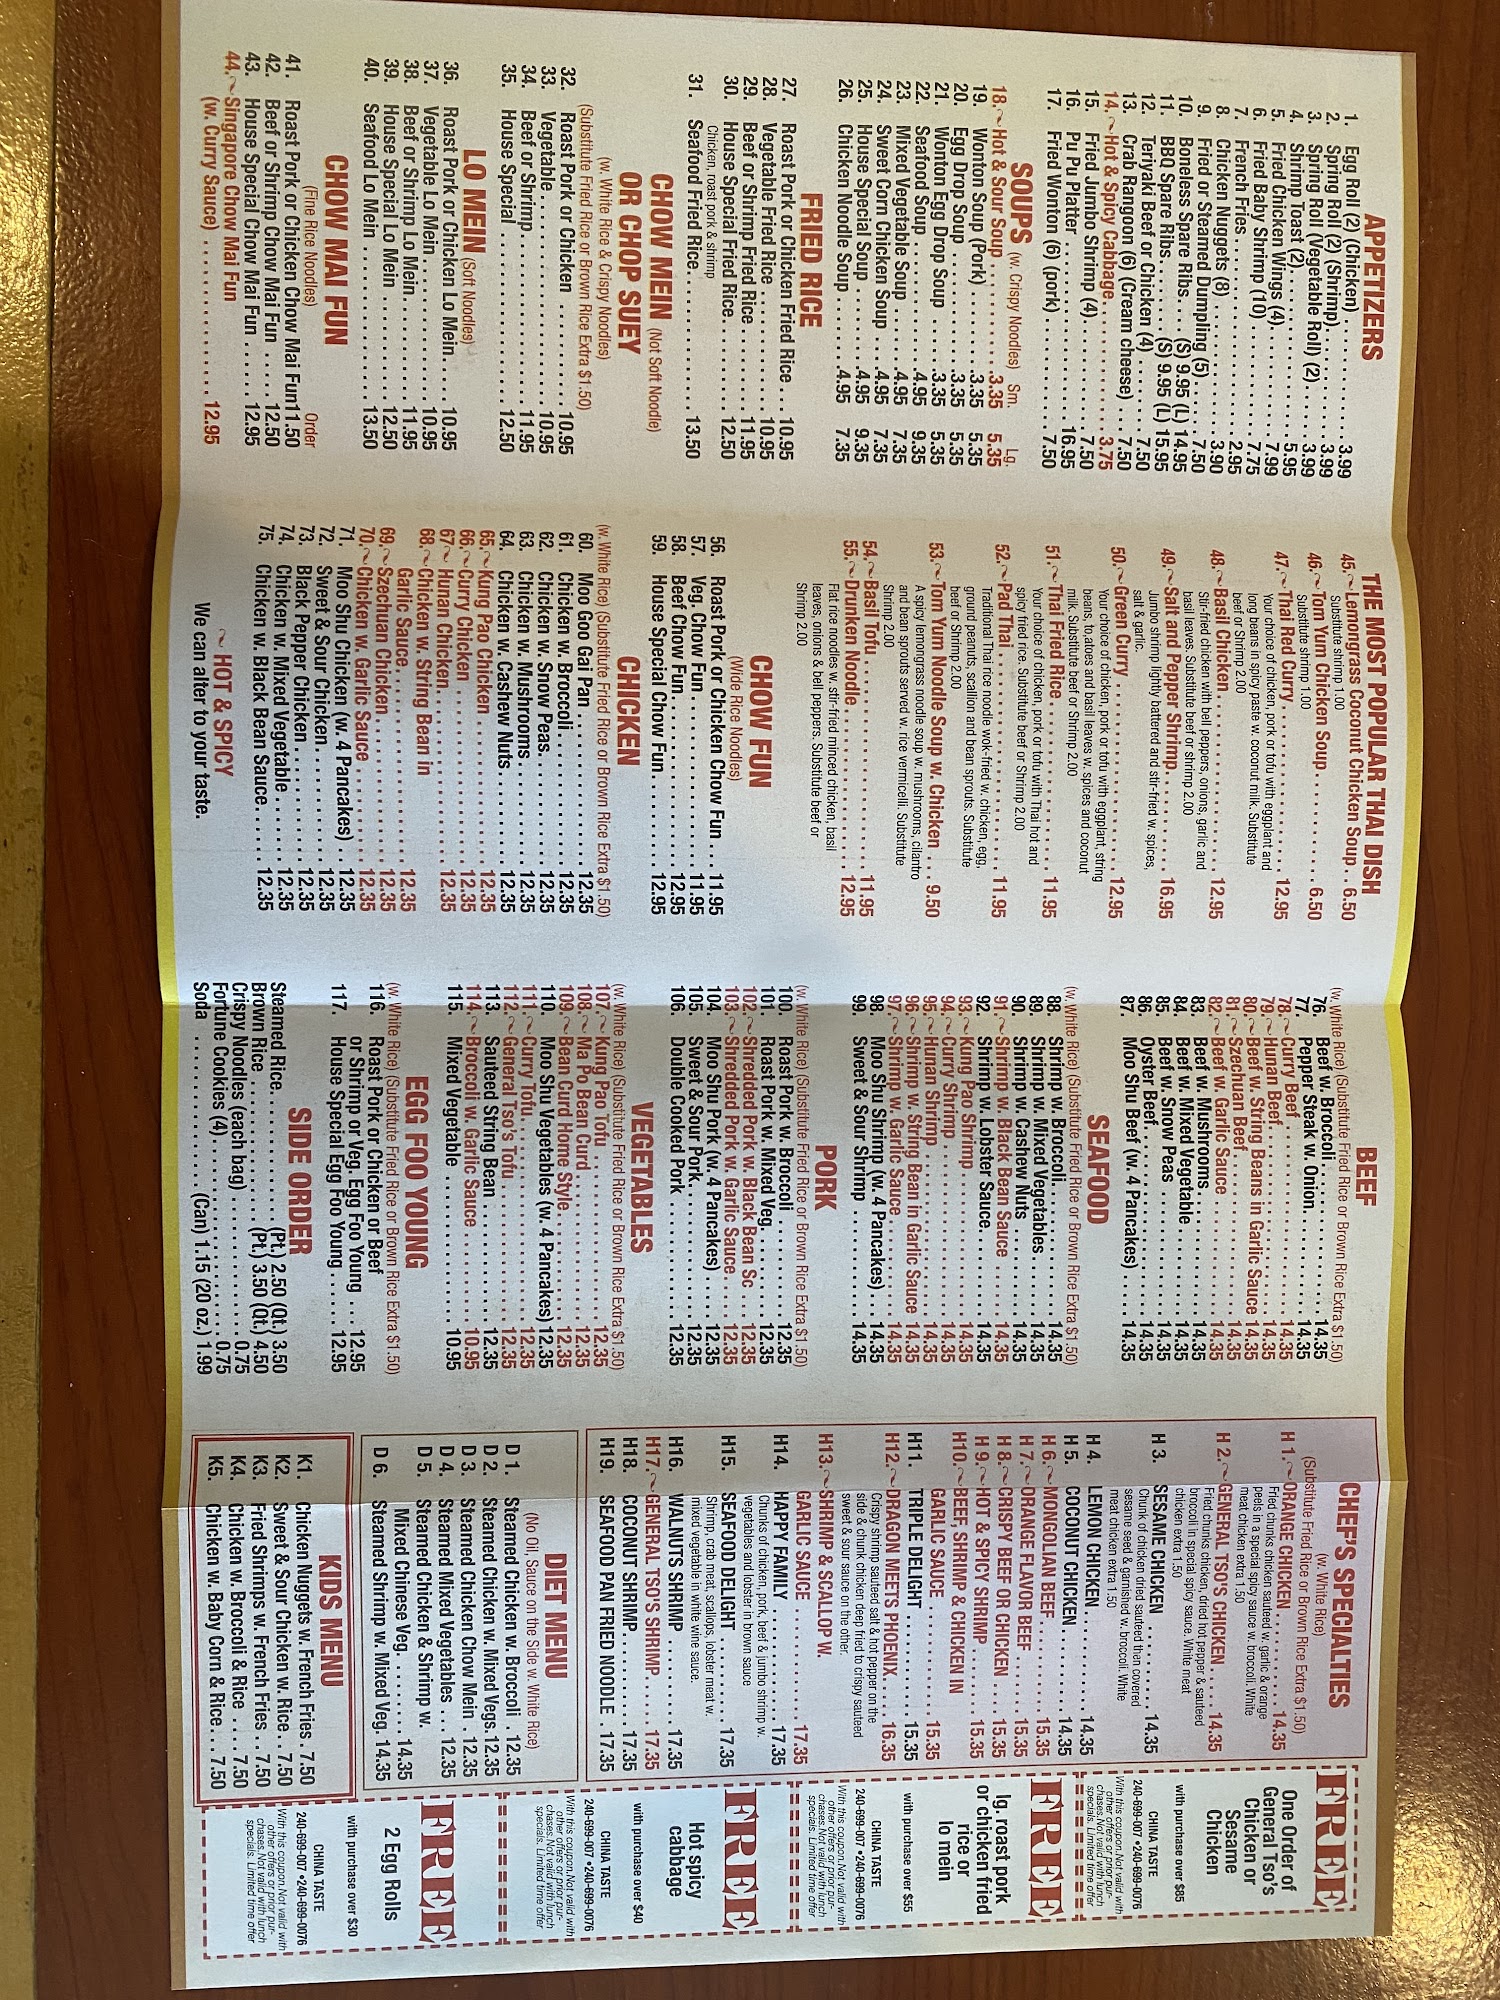 APPETIZERS
1. Egg Roll (2) (Chicken) . . . . . . . . . 3.99
2. Spring Roll (2) (Shrimp). . . . . . . . 3.99
3. Spring Roll (Vegetable Roll) (2). . . . 3.99
4. Shrimp Toast (2). . . . . . . . . . . 5.95
5. Fried Chicken Wings (4). . . . . . . . 7.99
6. Fried Baby Shrimp (10) . . . . . . . . 7.75
7. French Fries . . . . . . . . . . . . 2.95
8. Chicken Nuggets (8) . . . . . . . . . 3.90
9. Fried or Steamed Dumpling (5). . . . . 7.50
10. Boneless Spare Ribs. . . (S) 9.95 (L) 14.95
11. BBQ Spare Ribs. . . . . (S) 9.95 (L) 15.95
12. Teriyaki Beef or Chicken (4) . . . . . 7.50
13. Crab Rangoon (6) (Cream cheese) . . . 7.50
14. Hot & Spicy Cabbage. . . . . . . . . 3.75
15. Fried Jumbo Shrimp (4) . . . . . . . 7.50
16. Pu Pu Platter . . . . . . . . . . . 16.95
17. Fried Wonton (6) (pork) . . . . . . . 7.50
SOUPS (w. Crispy Noodles) Sm. Lg.
18. Hot & Sour Soup . . . . . . 3.35 5.35
19. Wonton Soup (Pork) . . . . 3.35 5.35
20. Egg Drop Soup . . . . . . 3.35 5.35
21. Wonton Egg Drop Soup . . . 3.35 5.35
22. Seafood Soup . . . . . . . 4.95 9.35
23. Mixed Vegetable Soup . . . 4.95 7.35
24. Sweet Corn Chicken Soup . . 4.95 7.35
25. House Special Soup . . . . 4.95 9.35
26. Chicken Noodle Soup . . . . 4.95 7.35
FRIED RICE
27. Roast Pork or Chicken Fried Rice . . . 10.95
28. Vegetable Fried Rice . . . . . . . . 10.95
29. Beef or Shrimp Fried Rice . . . . . . 11.95
30. House Special Fried Rice. . . . . . . 12.50
Chicken, roast pork & shrimp
31. Seafood Fried Rice. . . . . . . . . . 13.50
CHOW MEIN (Not Soft Noodle)
OR CHOP SUEY
(w. White Rice & Crispy Noodles)
(Substitute Fried Rice or Brown Rice Extra $1.50)
32. Roast Pork or Chicken . . . . . . . . 10.95
33. Vegetable. . . . . . . . . . . . . . 10.95
34. Beef or Shrimp. . . . . . . . . . . . 11.95
35. House Special . . . . . . . . . . . . 12.50
LO MEIN (Soft Noodles)
36. Roast Pork or Chicken Lo Mein. . . . 10.95
37. Vegetable Lo Mein . . . . . . . . . . 10.95
38. Beef or Shrimp Lo Mein. . . . . . . . 11.95
39. House Special Lo Mein . . . . . . . . 12.50
40. Seafood Lo Mein . . . . . . . . . . . 13.50
CHOW MAI FUN
(Fine Rice Noodles) Order
41. Roast Pork or Chicken Chow Mai Fun 11.50
42. Beef or Shrimp Chow Mai Fun . . . . 12.50
43. House Special Chow Mai Fun . . . . . 12.95
44. Singapore Chow Mai Fun
(w. Curry Sauce) . . . . . . . . . . . 12.95
THE MOST POPULAR THAI DISH
45. Lemongrass Coconut Chicken Soup . . 6.50
Substitute shrimp 1.00
46. Tom Yum Chicken Soup. . . . . . . . 6.50
Substitute shrimp 1.00
47. Thai Red Curry . . . . . . . . . . . 12.95
Your choice of chicken, pork, or tofu with eggplant and
long beans in spicy paste w. coconut milk. Substitute
beef or Shrimp 2.00
48. Basil Chicken. . . . . . . . . . . . 12.95
Stir-fried chicken with bell peppers, onions, garlic and
basil leaves. Substitute beef or shrimp 2.00
49. Salt and Pepper Shrimp. . . . . . . . 16.95
Jumbo shrimp lightly battered and stir-fried w. spices,
salt & garlic.
50. Green Curry . . . . . . . . . . . . . 12.95
Your choice of chicken, pork or tofu with eggplant, string
beans, tomatoes and basil leaves w. spices and coconut
milk. Substitute beef or Shrimp 2.00
51. Thai Fried Rice . . . . . . . . . . . 11.95
Your choice of chicken, pork or tofu with Thai hot and
spicy fried rice. Substitute beef or Shrimp 2.00
52. Pad Thai . . . . . . . . . . . . . . 11.95
Traditional Thai rice noodle wok-fried w. chicken, egg,
ground peanuts, scallion and bean sprouts. Substitute
beef or Shrimp 2.00
53. Tom Yum Noodle Soup w. Chicken . . . 9.50
A spicy lemongrass noodle soup w. mushrooms, cilantro
and bean sprouts served w. rice vermicelli. Substitute
Shrimp 2.00
54. Basil Tofu . . . . . . . . . . . . . 11.95
55. Drunken Noodle. . . . . . . . . . . . 12.95
Flat rice noodles w. stir-fried minced chicken, basil
leaves, onions & bell peppers. Substitute beef or
Shrimp 2.00
CHOW FUN
(Wide Rice Noodles)
56. Roast Pork or Chicken Chow Fun . . . 11.95
57. Veg. Chow Fun . . . . . . . . . . . . 11.95
58. Beef Chow Fun. . . . . . . . . . . . 12.95
59. House Special Chow Fun . . . . . . . 12.95
CHICKEN
(w. White Rice) (Substitute Fried Rice or Brown Rice Extra $1.50)
60. Moo Goo Gai Pan . . . . . . . . . . . 12.35
61. Chicken w. Broccoli . . . . . . . . . 12.35
62. Chicken w. Snow Peas. . . . . . . . . 12.35
63. Chicken w. Mushrooms . . . . . . . . 12.35
64. Chicken w. Cashew Nuts . . . . . . . 12.35
65. Kung Pao Chicken . . . . . . . . . . 12.35
66. Curry Chicken . . . . . . . . . . . . 12.35
67. Hunan Chicken. . . . . . . . . . . . 12.35
68. Chicken w. String Bean in
Garlic Sauce. . . . . . . . . . . . . 12.35
69. Szechuan Chicken . . . . . . . . . . 12.35
70. Chicken w. Garlic Sauce . . . . . . . 12.35
71. Moo Shu Chicken (w. 4 Pancakes) . . 12.35
72. Sweet & Sour Chicken. . . . . . . . . 12.35
73. Black Pepper Chicken . . . . . . . . 12.35
74. Chicken w. Mixed Vegetable . . . . . 12.35
75. Chicken w. Black Bean Sauce. . . . . 12.35
HOT & SPICY
We can alter to your taste.
BEEF
(w. White Rice) (Substitute Fried Rice or Brown Rice Extra $1.50)
76. Beef w. Broccoli . . . . . . . . . . . 14.35
77. Pepper Steak w. Onion. . . . . . . . 14.35
78. Curry Beef . . . . . . . . . . . . . 14.35
79. Hunan Beef. . . . . . . . . . . . . . 14.35
80. Beef w. String Beans in Garlic Sauce 14.35
81. Szechuan Beef . . . . . . . . . . . . 14.35
82. Beef w. Garlic Sauce . . . . . . . . 14.35
83. Beef w. Mushrooms. . . . . . . . . . 14.35
84. Beef w. Mixed Vegetable . . . . . . . 14.35
85. Beef w. Snow Peas . . . . . . . . . . 14.35
86. Oyster Beef. . . . . . . . . . . . . 14.35
87. Moo Shu Beef (w. 4 Pancakes) . . . . 14.35
SEAFOOD
(w. White Rice) (Substitute Fried Rice or Brown Rice Extra $1.50)
88. Shrimp w. Broccoli. . . . . . . . . . 14.35
89. Shrimp w. Mixed Vegetables . . . . . 14.35
90. Shrimp w. Cashew Nuts . . . . . . . . 14.35
91. Shrimp w. Black Bean Sauce . . . . . 14.35
92. Shrimp w. Lobster Sauce. . . . . . . 14.35
93. Kung Pao Shrimp . . . . . . . . . . . 14.35
94. Curry Shrimp . . . . . . . . . . . . 14.35
95. Hunan Shrimp . . . . . . . . . . . . 14.35
96. Shrimp w. String Bean in Garlic Sauce 14.35
97. Shrimp w. Garlic Sauce . . . . . . . 14.35
98. Moo Shu Shrimp (w. 4 Pancakes) . . . 14.35
99. Sweet & Sour Shrimp . . . . . . . . . 14.35
PORK
(w. White Rice) (Substitute Fried Rice or Brown Rice Extra $1.50)
100. Roast Pork w. Broccoli . . . . . . . 12.35
101. Roast Pork w. Mixed Veg. . . . . . . 12.35
102. Shredded Pork w. Black Bean Sc . . . 12.35
103. Shredded Pork w. Garlic Sauce. . . . 12.35
104. Moo Shu Pork (w. 4 Pancakes) . . . . 12.35
105. Sweet & Sour Pork. . . . . . . . . . 12.35
106. Double Cooked Pork . . . . . . . . . 12.35
VEGETABLES
(w. White Rice) (Substitute Fried Rice or Brown Rice Extra $1.50)
107. Kung Pao Tofu . . . . . . . . . . . 12.35
108. Ma Po Bean Curd . . . . . . . . . . 12.35
109. Bean Curd Home Style. . . . . . . . 12.35
110. Moo Shu Vegetables (w. 4 Pancakes) 12.35
111. Curry Tofu. . . . . . . . . . . . . 12.35
112. General Tso's Tofu . . . . . . . . . 12.35
113. Sauteed String Bean . . . . . . . . 12.35
114. Broccoli w. Garlic Sauce . . . . . . 10.95
115. Mixed Vegetable . . . . . . . . . . 10.95
EGG FOO YOUNG
(w. White Rice) (Substitute Fried Rice or Brown Rice Extra $1.50)
116. Roast Pork or Chicken or Beef
or Shrimp or Veg. Egg Foo Young . . . 12.95
117. House Special Egg Foo Young . . . . 12.95
SIDE ORDER
Steamed Rice. . . . . . . . . (Pt.) 2.50 (Qt.) 3.50
Brown Rice . . . . . . . . . . (Pt.) 3.50 (Qt.) 4.50
Crispy Noodles (each bag) . . . . . . . . 0.75
Fortune Cookies (4). . . . . . . . . . . . 0.75
Soda . . . . . . . . . . (Can) 1.15 (20 oz.) 1.99
CHEF'S SPECIALTIES
(w. White Rice)
(Substitute Fried Rice or Brown Rice Extra $1.50)
H 1. ORANGE CHICKEN . . . . . . . . . 14.35
Fried chunks chicken sauteed w. garlic & orange
peels in a special spicy sauce w. broccoli. White
meat chicken extra 1.50
H 2. GENERAL TSO'S CHICKEN . . . . 14.35
Fried chunks chicken, dried hot pepper & sauteed
broccoli in special spicy sauce. White meat
chicken extra 1.50
H 3. SESAME CHICKEN . . . . . . . . . 14.35
Chunk of chicken dried sauteed then covered
sesame seed & garnished w. broccoli. White
meat chicken extra 1.50
H 4. LEMON CHICKEN . . . . . . . . . . 14.35
H 5. COCONUT CHICKEN . . . . . . . . 14.35
H 6. MONGOLIAN BEEF . . . . . . . . . 15.35
H 7. ORANGE FLAVOR BEEF . . . . . . 15.35
H 8. CRISPY BEEF OR CHICKEN . . . . 15.35
H 9. HOT & SPICY SHRIMP . . . . . . . 15.35
H10. BEEF, SHRIMP & CHICKEN IN
GARLIC SAUCE . . . . . . . . . . . 15.35
H11. TRIPLE DELIGHT . . . . . . . . . . 15.35
H12. DRAGON MEETS PHOENIX. . . . . 16.35
Crispy shrimp sauteed salt & hot pepper on the
side & chunk chicken deep fried to crispy sauteed
sweet & sour sauce on the other.
H13. SHRIMP & SCALLOP W.
GARLIC SAUCE . . . . . . . . . . . 17.35
H14. HAPPY FAMILY . . . . . . . . . . . 17.35
Chunks of chicken, pork, beef & jumbo shrimp w.
vegetables and lobster in brown sauce
H15. SEAFOOD DELIGHT . . . . . . . . . 17.35
Shrimp, crab meat, scallops, lobster meat w.
mixed vegetable in white wine sauce.
H16. WALNUTS SHRIMP . . . . . . . . . 17.35
H17. GENERAL TSO'S SHRIMP. . . . . . 17.35
H18. COCONUT SHRIMP. . . . . . . . . 17.35
H19. SEAFOOD PAN FRIED NOODLE . 17.35
DIET MENU
(No Oil, Sauce on the Side w. White Rice)
D 1. Steamed Chicken w. Broccoli . 12.35
D 2. Steamed Chicken w. Mixed Vegs. 12.35
D 3. Steamed Chicken Chow Mein . 12.35
D 4. Steamed Mixed Vegetables . . . 12.35
D 5. Steamed Chicken & Shrimp w.
Mixed Chinese Veg. . . . . . . . 14.35
D 6. Steamed Shrimp w. Mixed Veg. 14.35
KIDS MENU
K1. Chicken Nuggets w. French Fries . 7.50
K2. Sweet & Sour Chicken w. Rice . . 7.50
K3. Fried Shrimps w. French Fries . . 7.50
K4. Chicken w. Broccoli & Rice . . . . 7.50
K5. Chicken w. Baby Corn & Rice. . . 7.50
FREE
One Order of
General Tso's
Chicken or
Sesame
Chicken
with purchase over $85
CHINA TASTE
240-699-007 • 240-699-0076
With this coupon.Not valid with
other offers or prior pur-
chases.Not valid with lunch
specials. Limited time offer
FREE
lg. roast pork
or chicken fried
rice or
lo mein
with purchase over $55
CHINA TASTE
240-699-007 • 240-699-0076
With this coupon.Not valid with
other offers or prior pur-
chases.Not valid with lunch
specials. Limited time offer
FREE
Hot spicy
cabbage
with purchase over $40
CHINA TASTE
240-699-007 • 240-699-0076
With this coupon.Not valid with
other offers or prior pur-
chases.Not valid with lunch
specials. Limited time offer
FREE
2 Egg Rolls
with purchase over $30
CHINA TASTE
240-699-007 • 240-699-0076
With this coupon.Not valid with
other offers or prior pur-
chases.Not valid with lunch
specials. Limited time offer